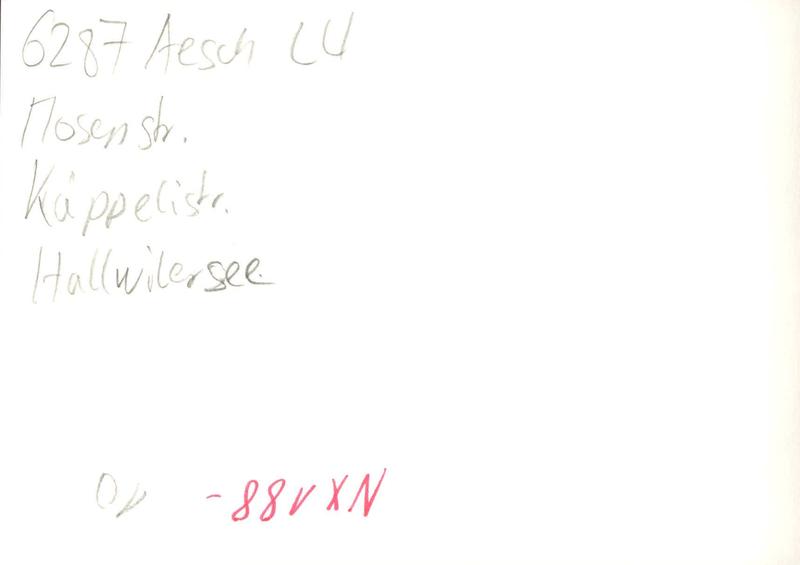 6287 Aesch LU
Mosenstr.
Käppelistr.
Hallwilersee
-88 V XN